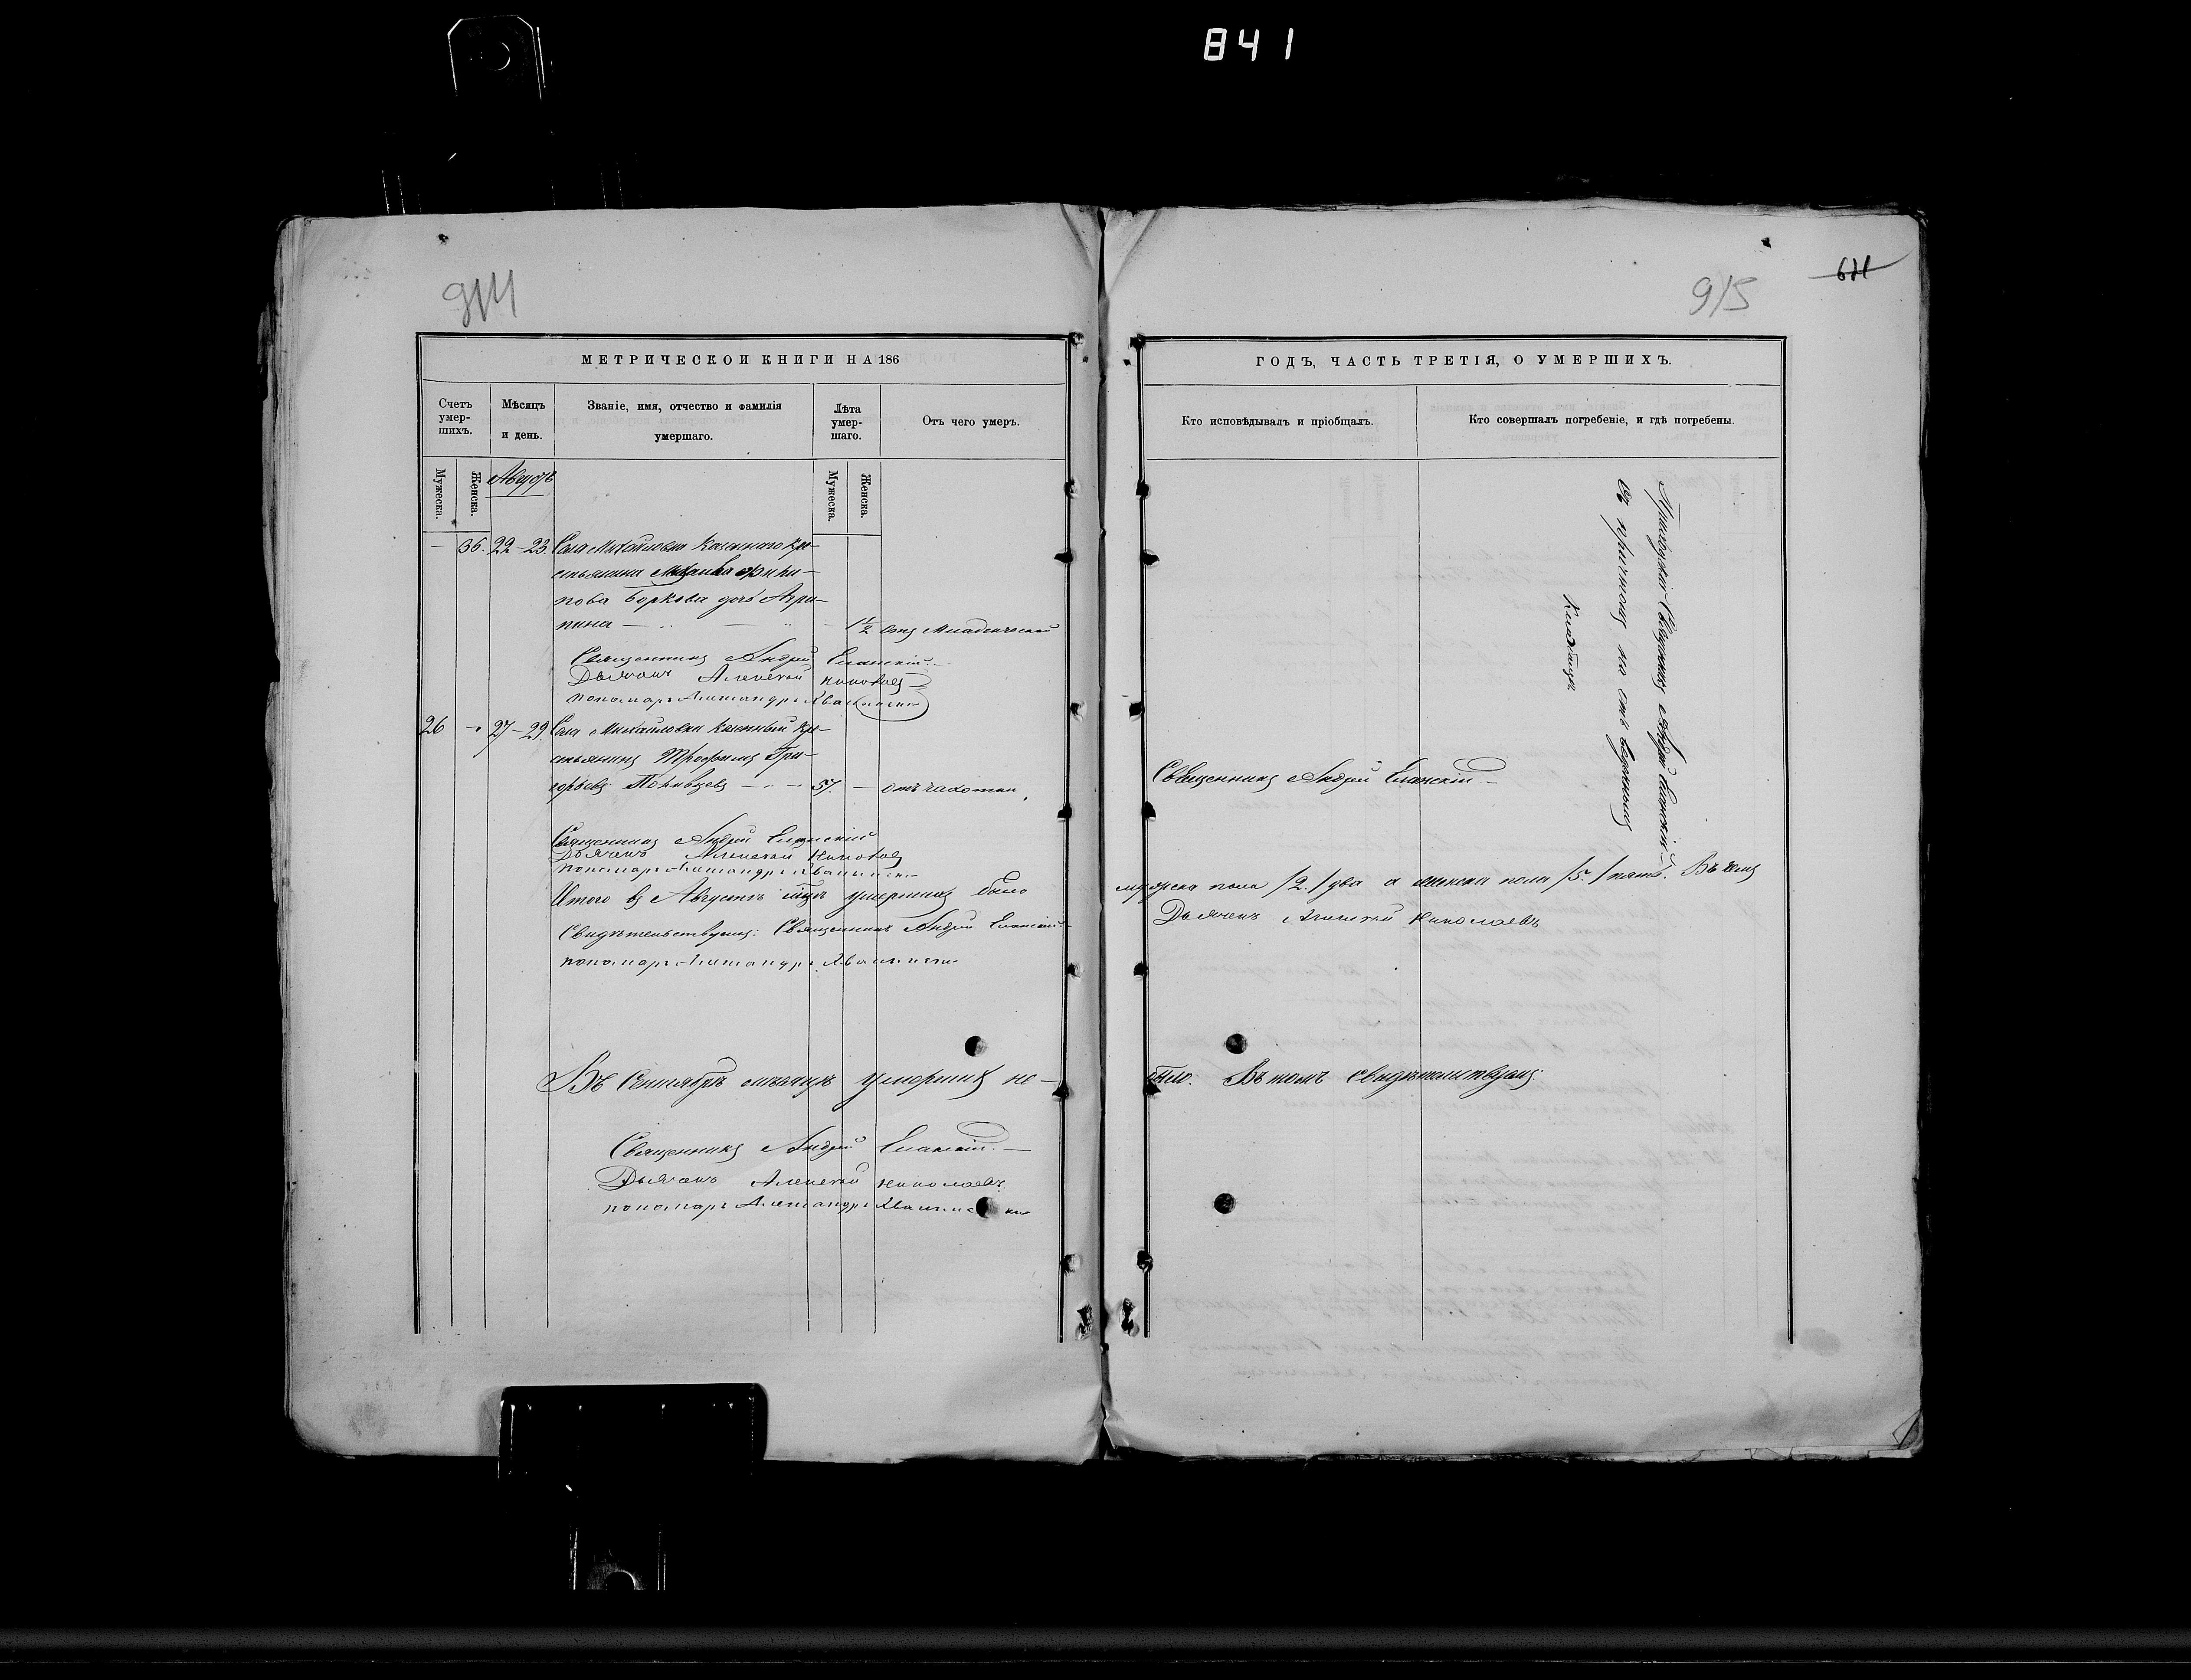 841
914
МЕТРИЧЕСКОЙ КНИГИ НА 186
Счетъ умершихъ.
Мѣсяцъ и день.
Званіе, имя, отчество и фамилія умершаго.
Лѣта умершаго.
Отъ чего умеръ.
Мужеска.
Женска.
Августъ
Мужеска.
Женска.
— 36. 22 – 23. Села Михайловки казеннаго кре-
стьянина
пова Боркова дочь Агри-
пина — 1 1/2 отъ младенческой
Священникъ Андрей Еланскій
Дьячекъ Алексѣй Николаевъ
пономарь Александръ Хвалынскій
26 — 27 – 29. Села Михайловки казенный кре-
стьянинъ Трофимъ Гри-
горьевъ 57. — отъ чахотки
Священникъ Андрей Еланскій
Дьячекъ Алексѣй Николаевъ
пономарь Александръ Хвалынскій
Итого въ Августѣ мцѣ умершихъ было
Свидѣтельствуемъ: Священникъ Андрей Еланскій
пономарь Александръ Хвалынскій
Въ Сентябрѣ мѣсяцѣ умершихъ не —
Священникъ Андрей Еланскій. —
Дьячекъ Алексѣй Николаевъ
пономарь Александръ Хвалынскій
915
ГОДЪ, ЧАСТЬ ТРЕТІЯ, О УМЕРШИХЪ.
Кто исповѣдывалъ и пріобщалъ.
Кто совершалъ погребеніе, и гдѣ погребены.
Приходскій Священникъ Андрей Еланскій
Съ причтомъ на отведенномъ
Кладбищѣ
Священникъ Андрей Еланскій. —
мужеска пола /2./ два а женска пола /5./ пять. Въ чемъ
Дьячекъ Алексѣй Николаевъ
было. Въ томъ свидѣтельствуемъ: